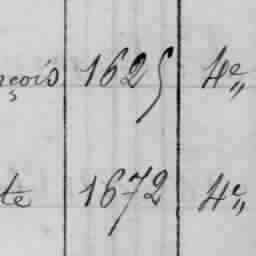 rçois 1625 4e„
te 1672 4e„